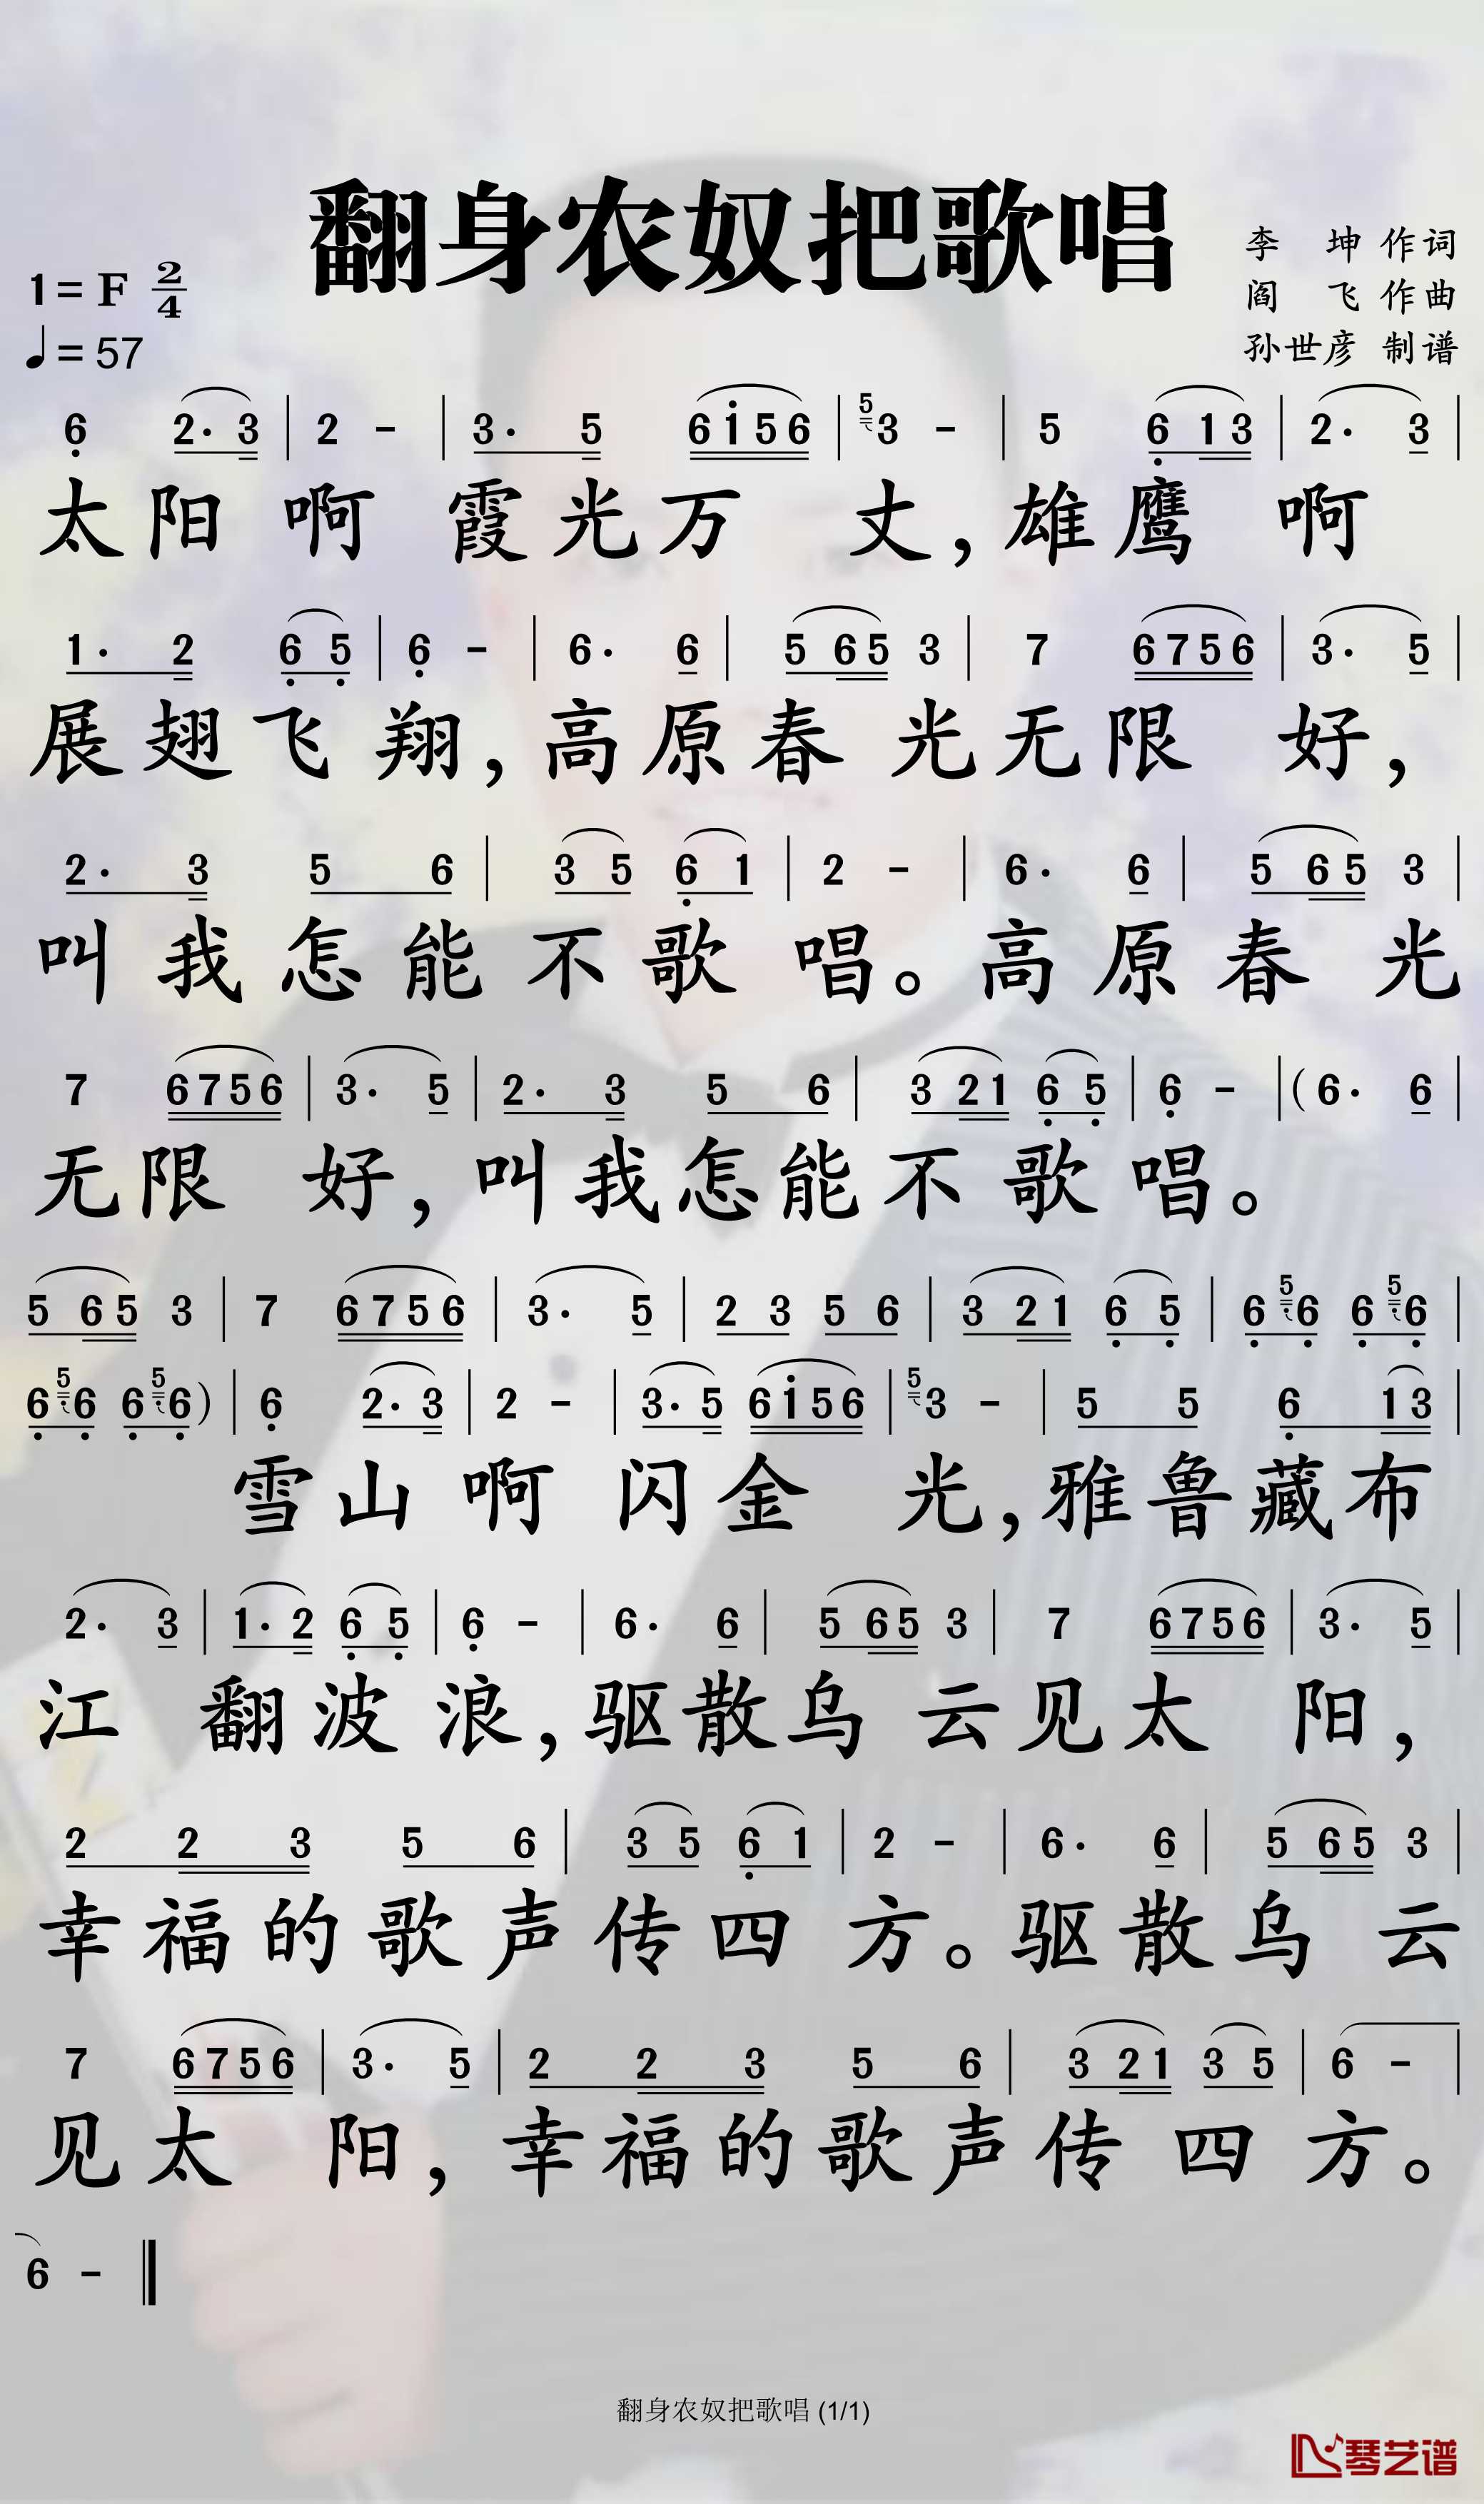 翻身农奴把歌唱
李 坤 作词
1= F 2/4
阎 飞 作曲
♩= 57
孙世彦 制谱
6 2· 3 | 2 - | 3· 5 6 i 5 6 | 5 3 - | 5 6 1 3 | 2· 3 |
太 阳 啊 霞 光 万 丈, 雄 鹰 啊
1· 2 6 5 | 6 - | 6· 6 | 5 6 5 3 | 7 6 7 5 6 | 3· 5 |
展 翅 飞 翔, 高 原 春 光 无 限 好,
2· 3 5 6 | 3 5 6 1 | 2 - | 6· 6 | 5 6 5 3 |
叫 我 怎 能 不 歌 唱。高 原 春 光
7 6 7 5 6 | 3· 5 | 2· 3 5 6 | 3 2 1 6 5 | 6 - | (6· 6 |
无 限 好, 叫 我 怎 能 不 歌 唱。
5 6 5 3 | 7 6 7 5 6 | 3· 5 | 2 3 5 6 | 3 2 1 6 5 | 6 5 6 6 5 6 |
6 5 6 6 5 6) | 6 2· 3 | 2 - | 3· 5 6 i 5 6 | 5 3 - | 5 5 6 1 3 |
雪 山 啊 闪 金 光, 雅 鲁 藏 布
2· 3 | 1· 2 6 5 | 6 - | 6· 6 | 5 6 5 3 | 7 6 7 5 6 | 3· 5 |
江 翻 波 浪, 驱 散 乌 云 见 太 阳,
2 2 3 5 6 | 3 5 6 1 | 2 - | 6· 6 | 5 6 5 3 |
幸 福 的 歌 声 传 四 方。驱 散 乌 云
7 6 7 5 6 | 3· 5 | 2 2 3 5 6 | 3 2 1 3 5 | 6 - |
见 太 阳, 幸 福 的 歌 声 传 四 方。
6 - ‖
翻身农奴把歌唱 (1/1)
琴艺谱